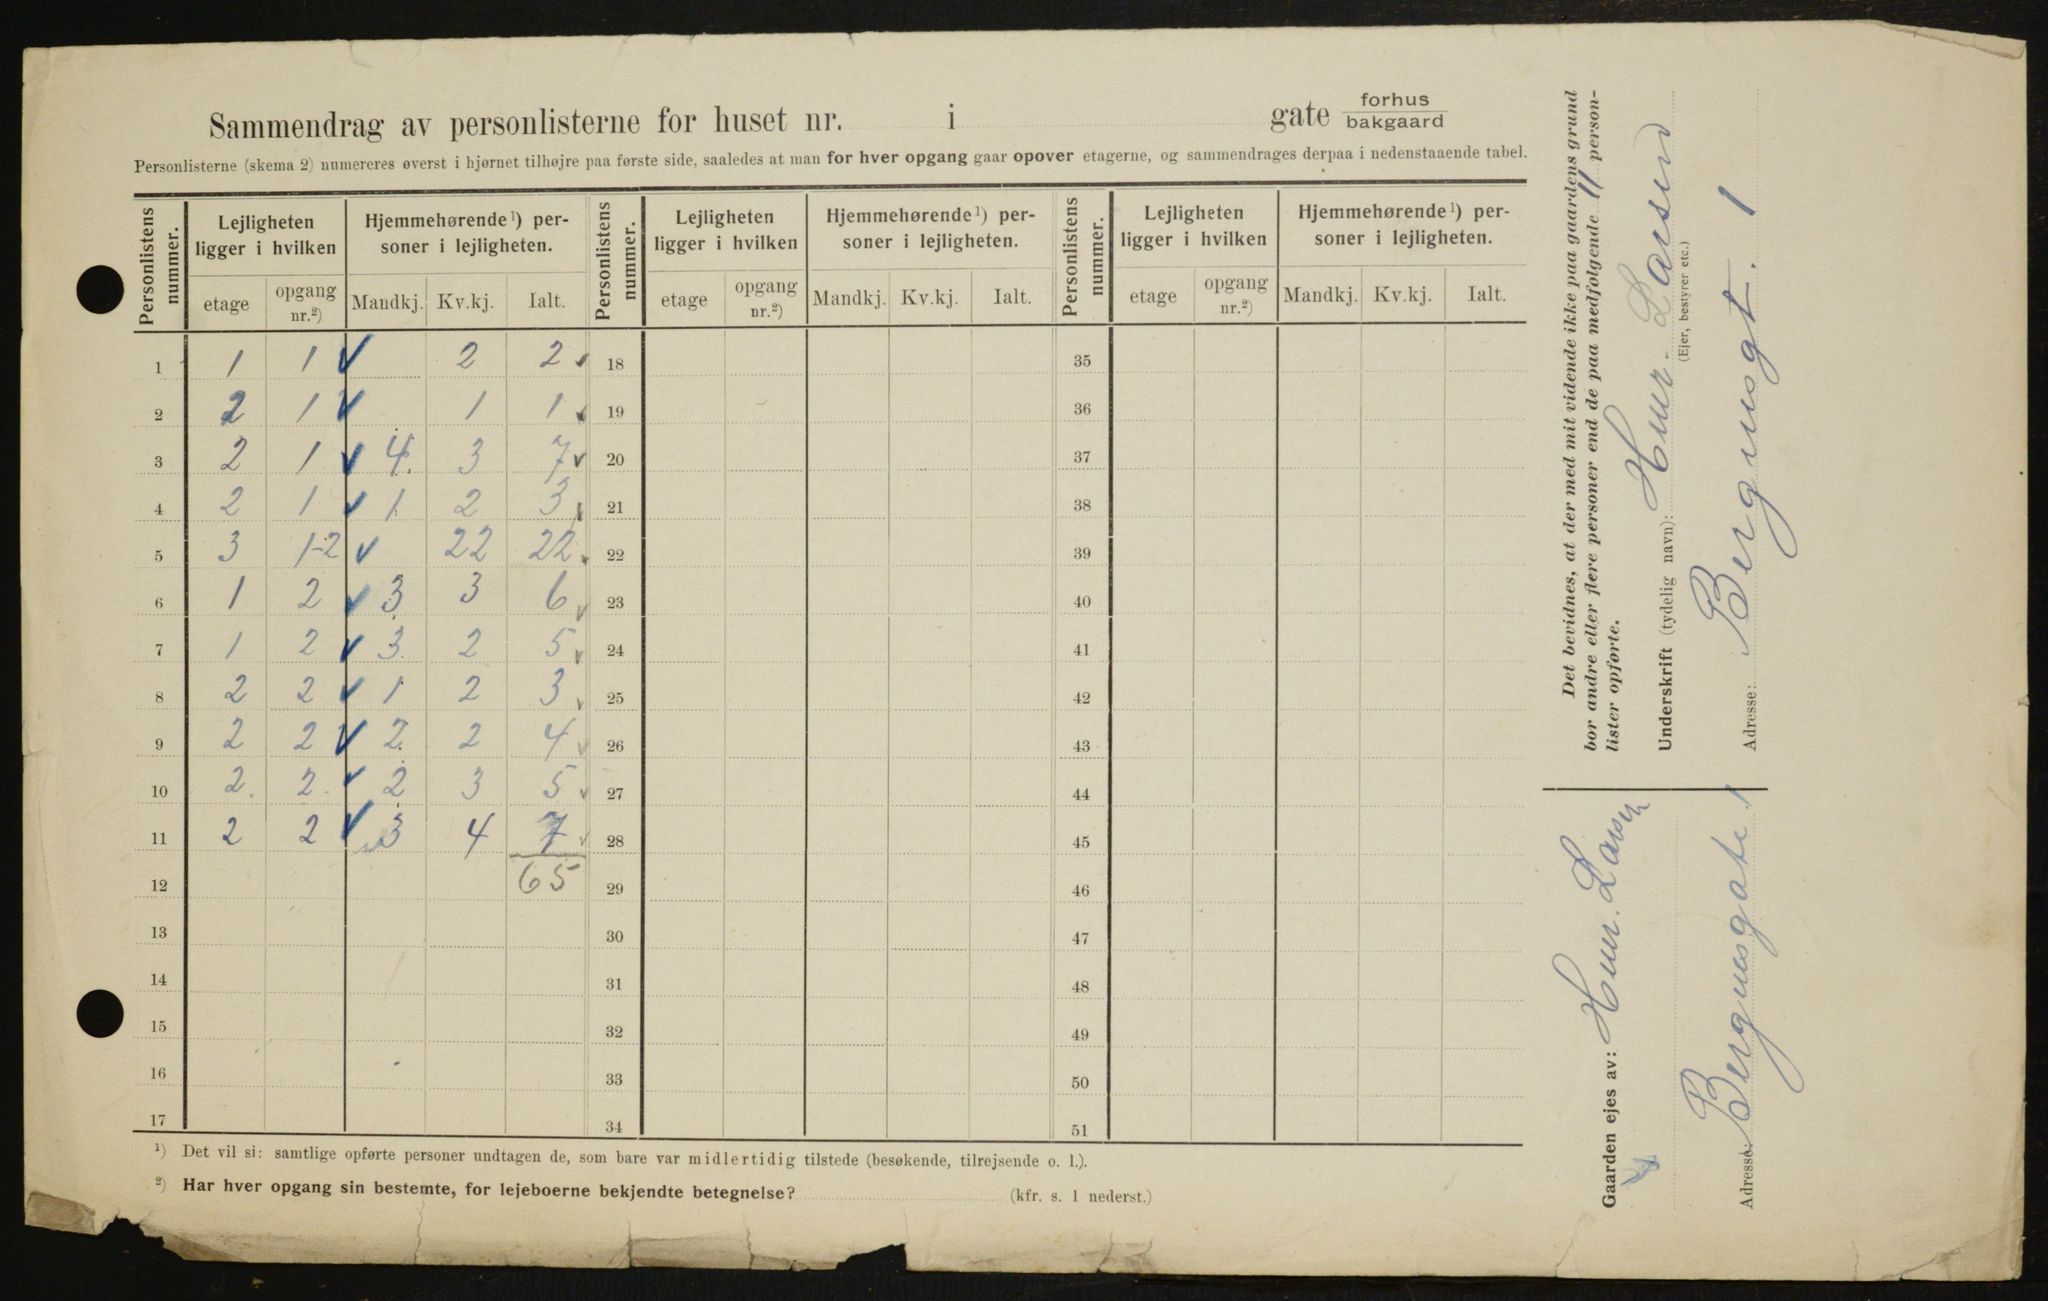 Sammendrag av personlisterne for huset nr. i gate forhus bakgaard
Personlisterne (skema 2) numereres øverst i hjørnet tilhøjre paa første side, saaledes at man for hver opgang gaar opover etagerne, og sammendrages derpaa i nedenstaaende tabel.
Personlistens nummer. Lejligheten ligger i hvilken Hjemmehørende ¹) personer i lejligheten. Personlistens nummer. Lejligheten ligger i hvilken Hjemmehørende ¹) personer i lejligheten. Personlistens nummer. Lejligheten ligger i hvilken Hjemmehørende ¹) personer i lejligheten.
etage opgang nr.²) Mandkj. Kv.kj. Ialt. etage opgang nr.²) Mandkj. Kv.kj. Ialt. etage opgang nr.²) Mandkj. Kv.kj. Ialt.
1 1 1 ✓ 2 2 ✓ 18 35
2 2 1 ✓ 1 1 ✓ 19 36
3 2 1 ✓ 4 3 7 ✓ 20 37
4 2 1 ✓ 1 2 3 ✓ 21 38
5 3 1-2 ✓ 22 22 ✓ 22 39
6 1 2 ✓ 3 3 6 ✓ 23 40
7 1 2 ✓ 3 2 5 ✓ 24 41
8 2 2 ✓ 1 2 3 ✓ 25 42
9 2 2 ✓ 2 2 4 ✓ 26 43
10 2 2 ✓ 2 3 5 ✓ 27 44
11 2 2 ✓ 3 4 7 ✓ 28 45
12 65 29 46
13 30 47
14 31 48
15 32 49
16 33 50
17 34 51
¹) Det vil si: samtlige opførte personer undtagen de, som bare var midlertidig tilstede (besøkende, tilrejsende o. l.).
²) Har hver opgang sin bestemte, for lejeboerne bekjendte betegnelse? (kfr. s. 1 nederst.)
Det bevidnes, at der med mit vidende ikke paa gaardens grund
bor andre eller flere personer end de paa medfølgende 11 person-
lister opførte.
Underskrift (tydelig navn): Hmr. Larsen
(Ejer, bestyrer etc.)
Adresse: Bergnusgt. 1
Gaarden ejes av: Hmr. Larsen
Adresse: Bergnusgate 1